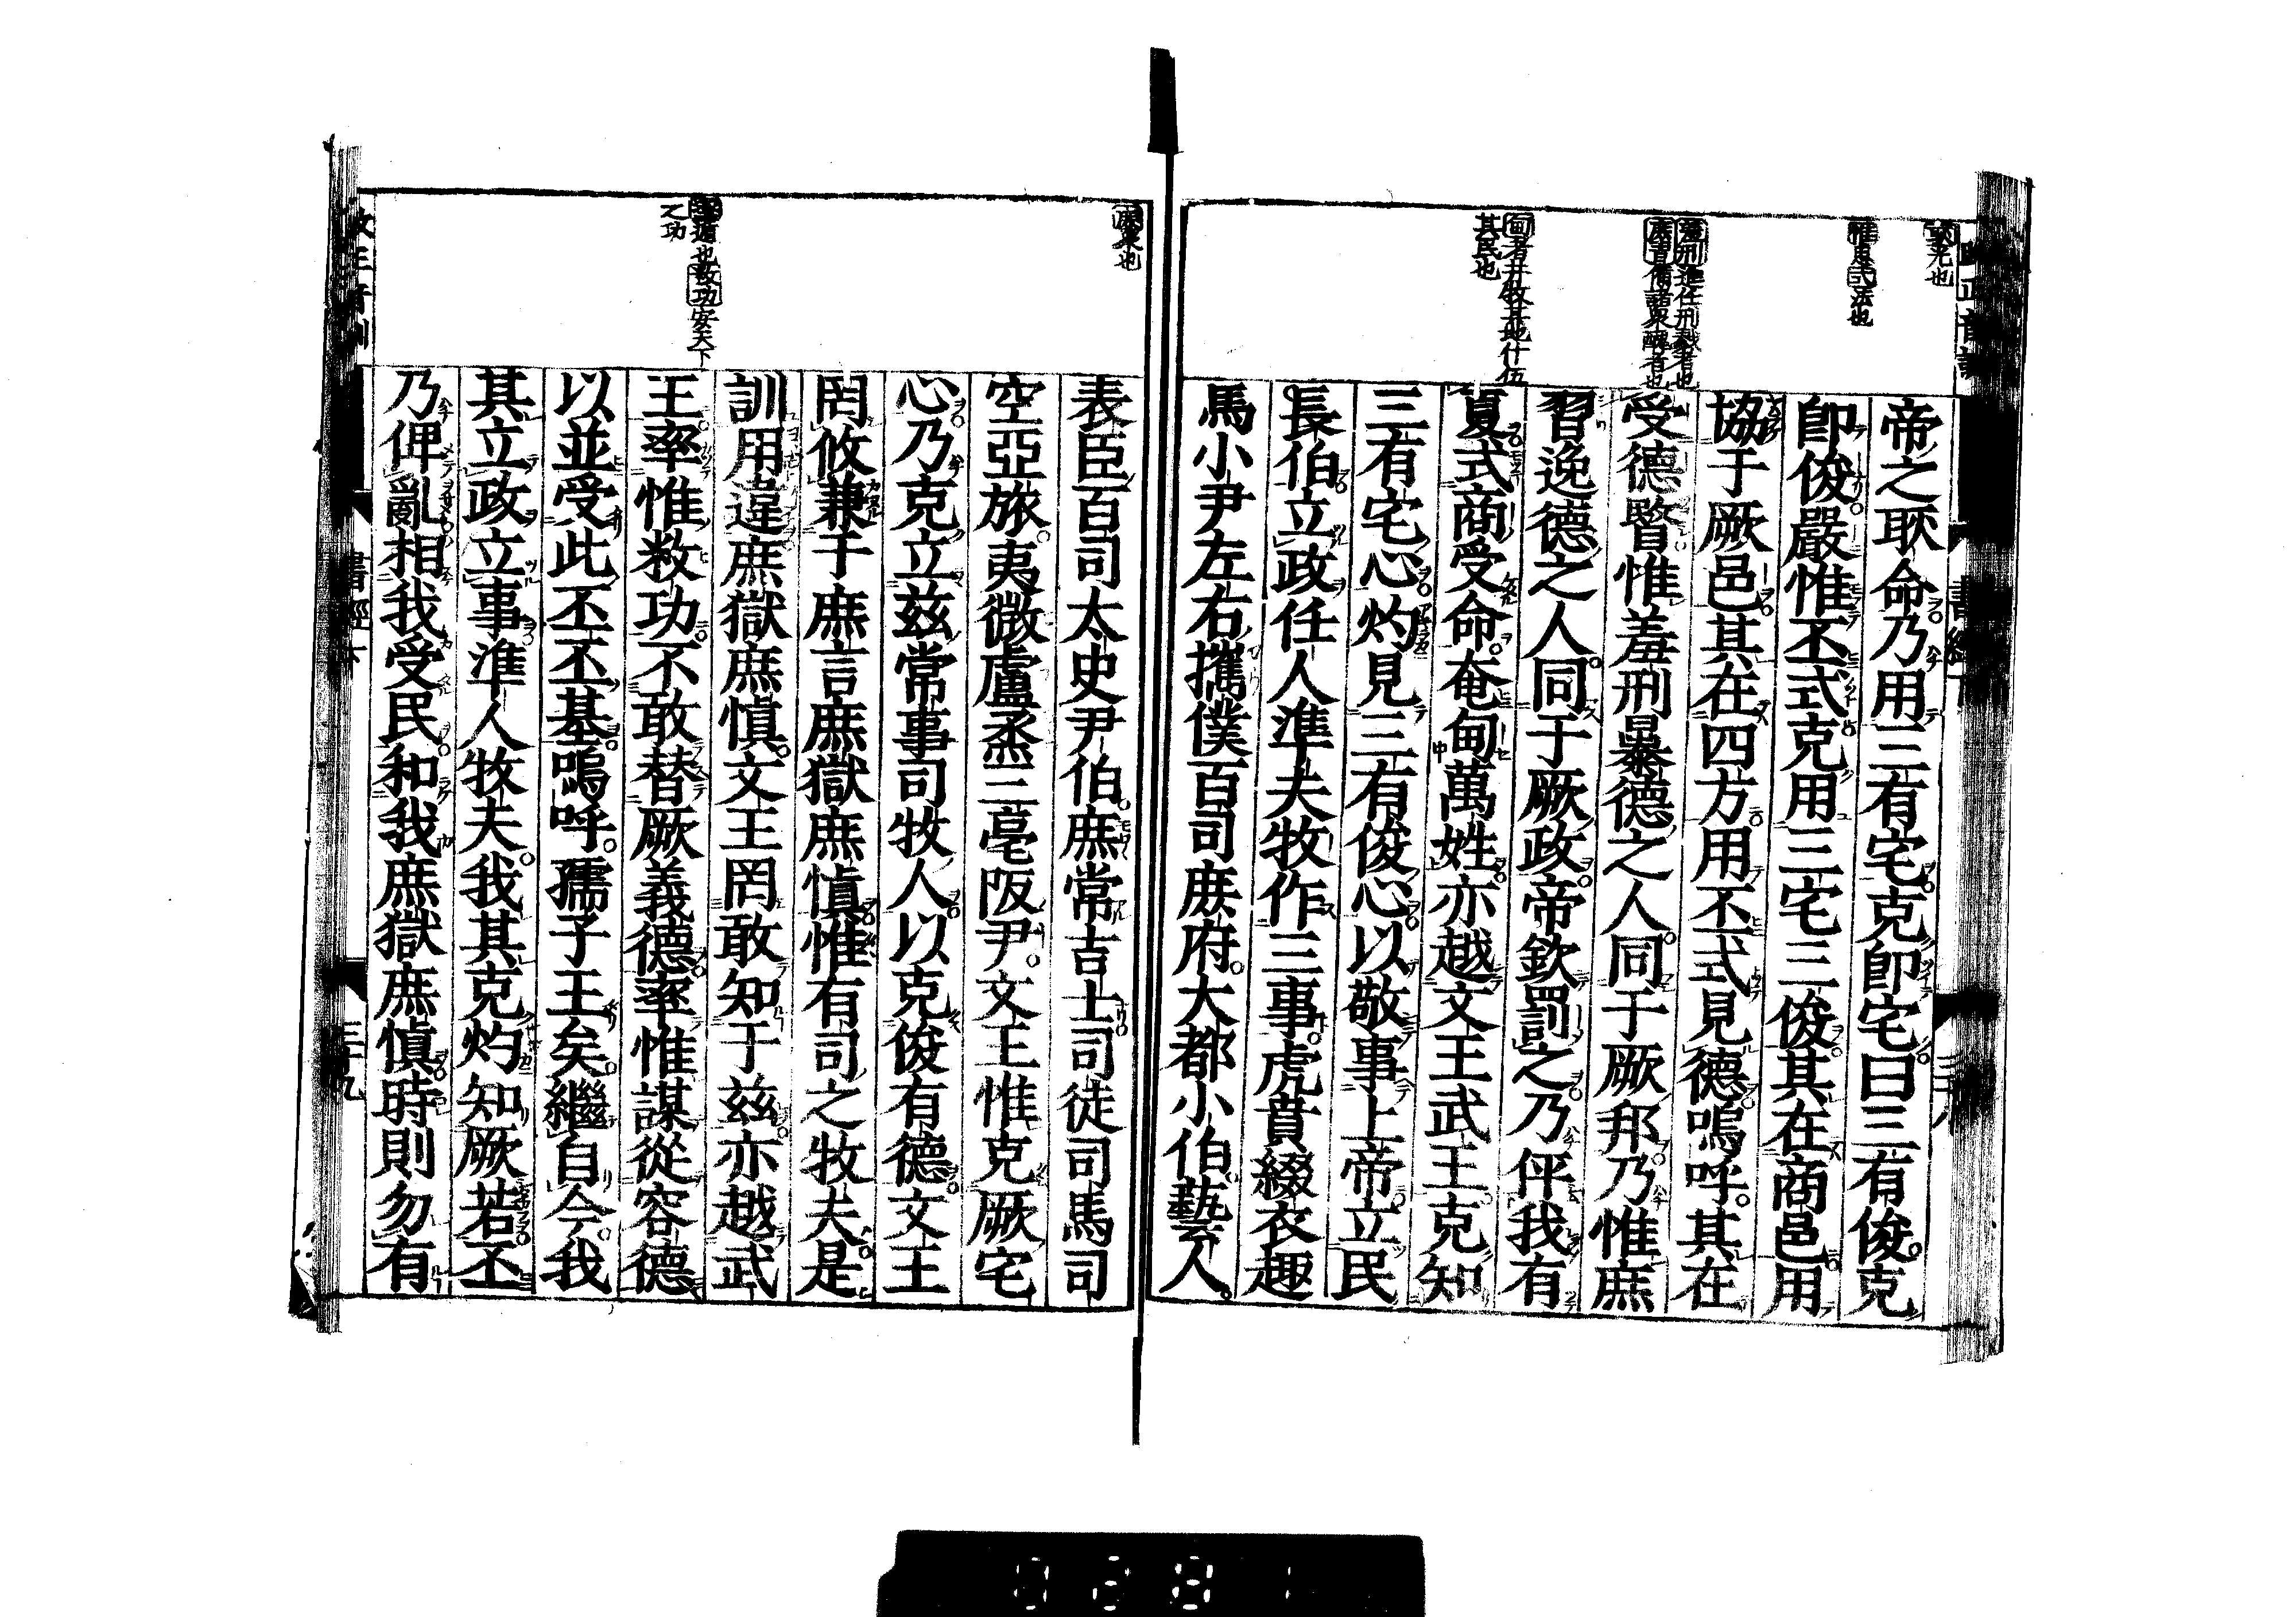 耿光也
惟思式法也
羞刑進任刑戮者也
庶習備諸衆醜者也
甸者井牧其地什伍
其民也
帝之耿命乃用三有宅克卽宅曰三有俊克
卽俊嚴惟丕式克用三宅三俊其在商邑用
協于厥邑其在四方用丕式見德嗚呼其在
受德暋惟羞刑暴德之人同于厥邦乃惟庶
習逸德之人同于厥政帝欽罰之乃伻我有
夏式商受命奄甸萬姓亦越文王武王克知
三有宅心灼見三有俊心以敬事上帝立民
長伯立政任人準夫牧作三事虎賁綴衣趣
馬小尹左右攜僕百司庶府大都小伯藝人
庶衆也
也敉功安天下
之功
表臣百司太史尹伯庶常吉士司徒司馬司
空亞旅夷微盧烝三亳阪尹文王惟克厥宅
心乃克立茲常事司牧人以克俊有德文王
罔攸兼于庶言庶獄庶愼惟有司之牧夫是
訓用違庶獄庶愼文王罔敢知于茲亦越武
王率惟敉功不敢替厥義德率惟謀從容德
以並受此丕丕基嗚呼孺子王矣繼自今我
其立政立事準人牧夫我其克灼知厥若丕
乃俾亂相我受民和我庶獄庶愼時則勿有
書經下
三十九